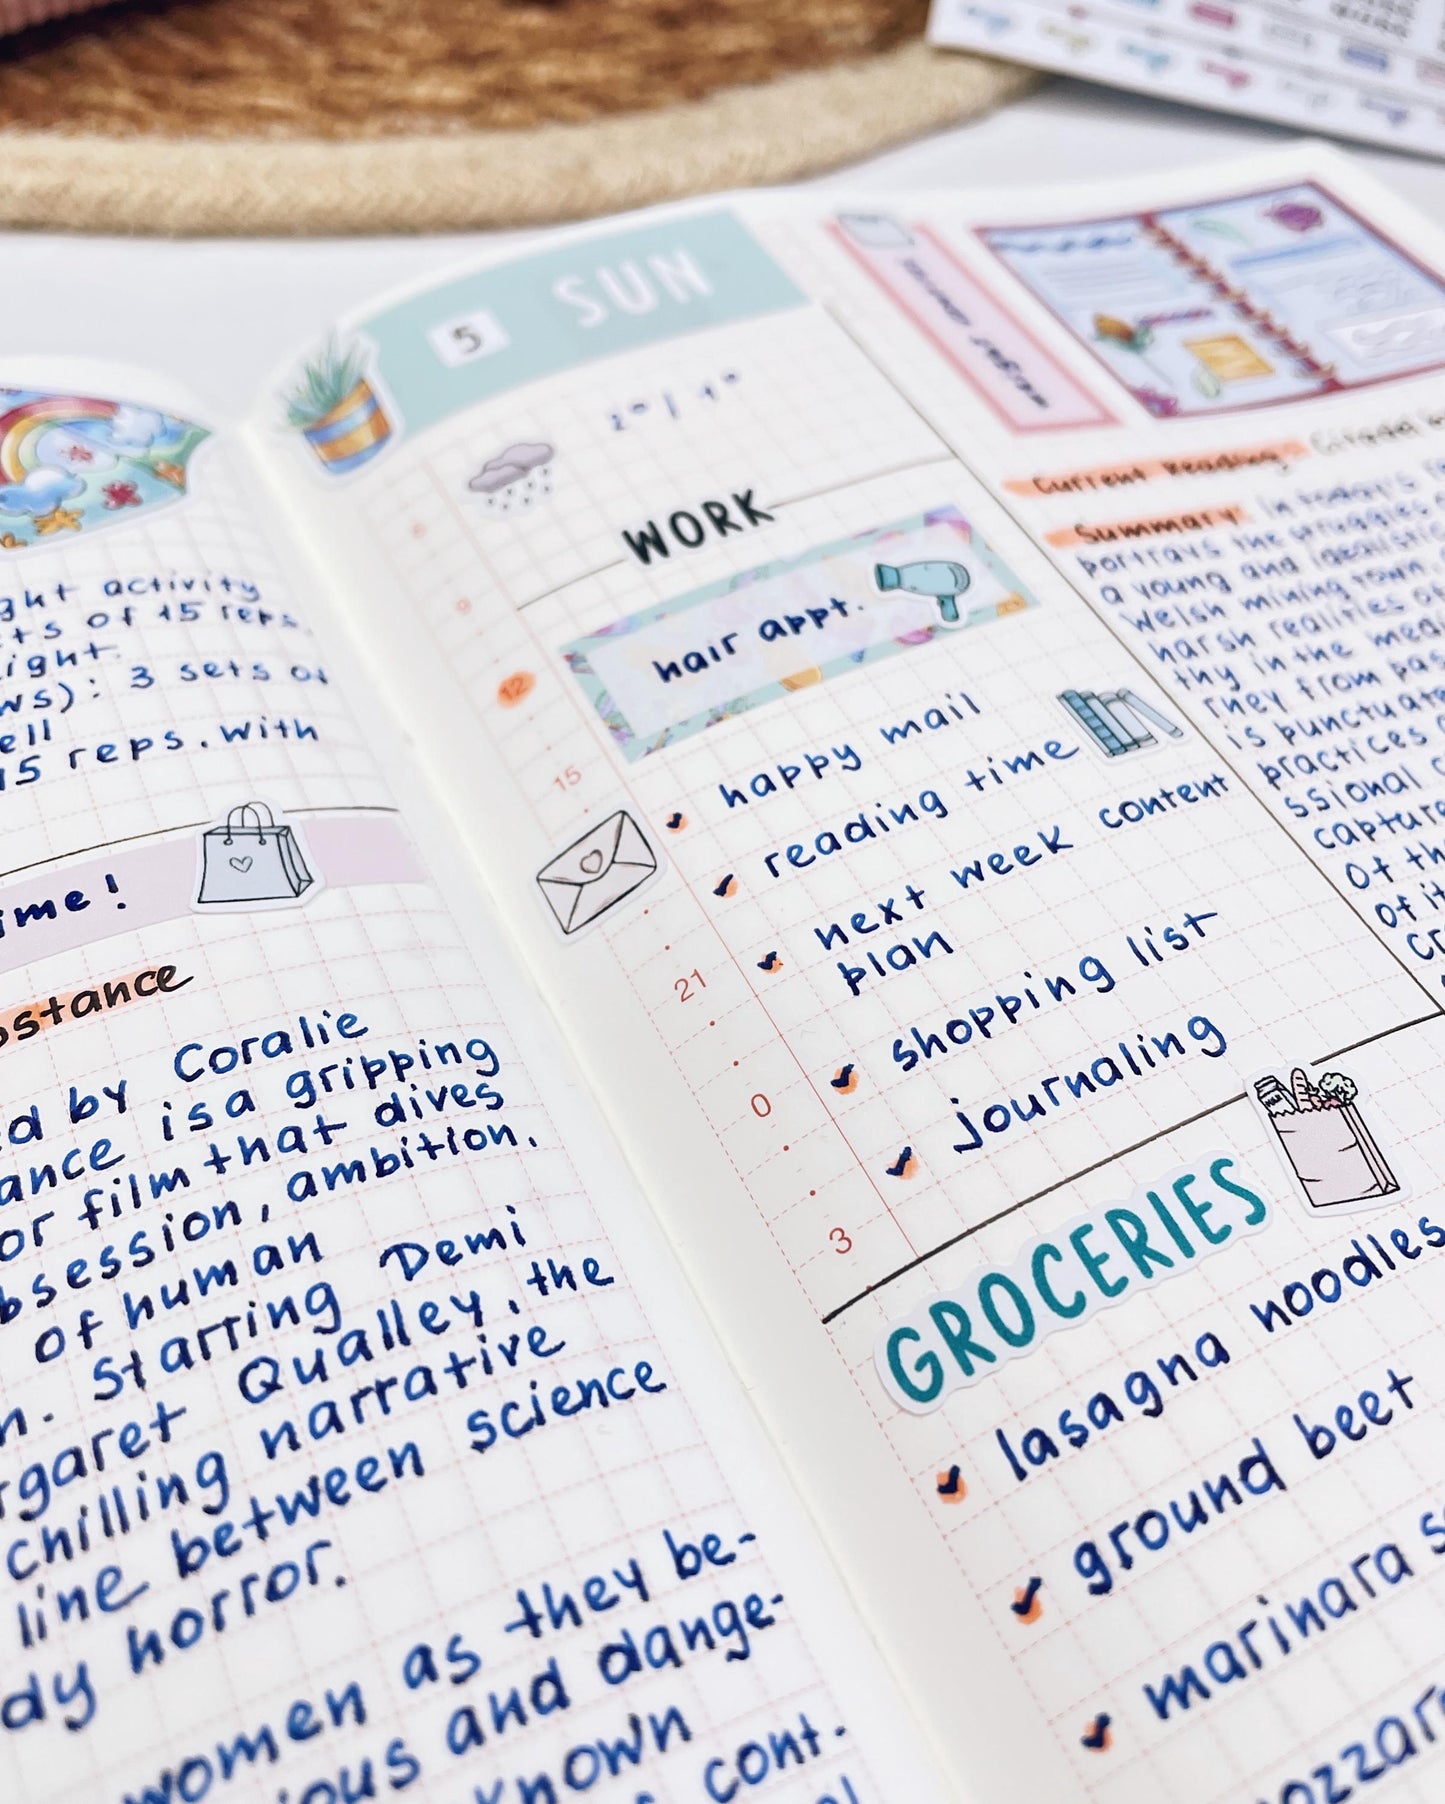 ght activity
ts of 15 reps.
ight.
ws): 3 sets of
ell
15 reps. with
ime!
bstance
ed by Coralie
ance is a gripping
or film that dives
bsession, ambition,
of human
n. Starring Demi
rgaret Qualley, the
chilling narrative
line between science
dy horror.
women as they be-
ious and dange-
known
cont.
5 SUN
WORK
hair appt.
happy mail
reading time
next week content
plan
shopping list
journaling
12
15
21
0
3
GROCERIES
lasagna noodles
ground beet
marinara s
ozzar
Current Reading: Citadel
Summary: In today's
portrays the struggles
a young and idealistic
Welsh mining town.
harsh realities of
thy in the med
rney from pas
is punctuate
practices
ssional c
capture
of th
of it